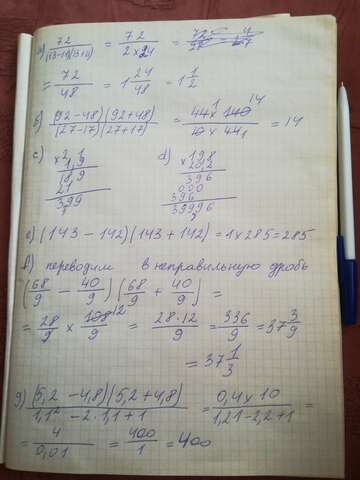 a) 72/(13-11)(13+11) = 72/2×24 = 72/27
= 72/48 = 1 24/48 = 1 1/2
b) (92-48)(92+48)/(27-17)(27+17) = 44×140/10×44 = 14
c) d)
×2,1 ×198
1,9 20,2
18,9 396
21 000
399 396
39996
e) (143-142)(143+142)=1×285=285
f) переводим в неправильную дробь
(68/9 - 40/9)(68/9 + 40/9) =
= 28/9 × 108/9 = 28·12/9 = 336/9 = 37 3/9
= 37 1/3
g) (5,2-4,8)(5,2+4,8)/1,1²-2·1,1+1 = 0,4×10/1,21-2,2+1 =
= 4/0,01 = 400/1 = 400